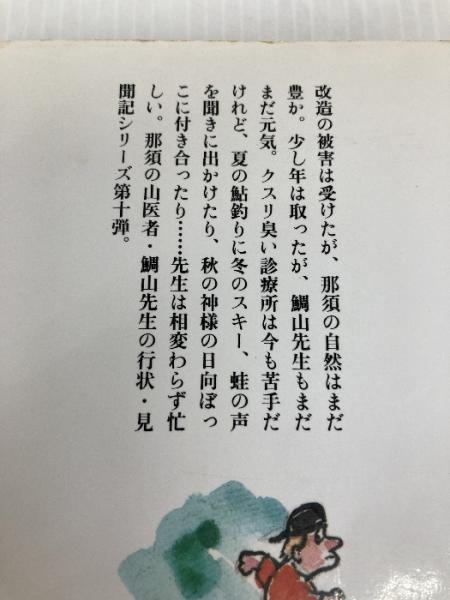 改造の被害は受けたが、那須の自然はまだ
豊か。少し年は取ったが、鯛山先生もまだ
まだ元気。クスリ臭い診療所は今も苦手だ
けれど、夏の鮎釣りに冬のスキー、蛙の声
を聞きに出かけたり、秋の神様の日向ぼっ
こに付き合ったり……先生は相変わらず忙
しい。那須の山医者・鯛山先生の行状・見
聞記シリーズ第十弾。